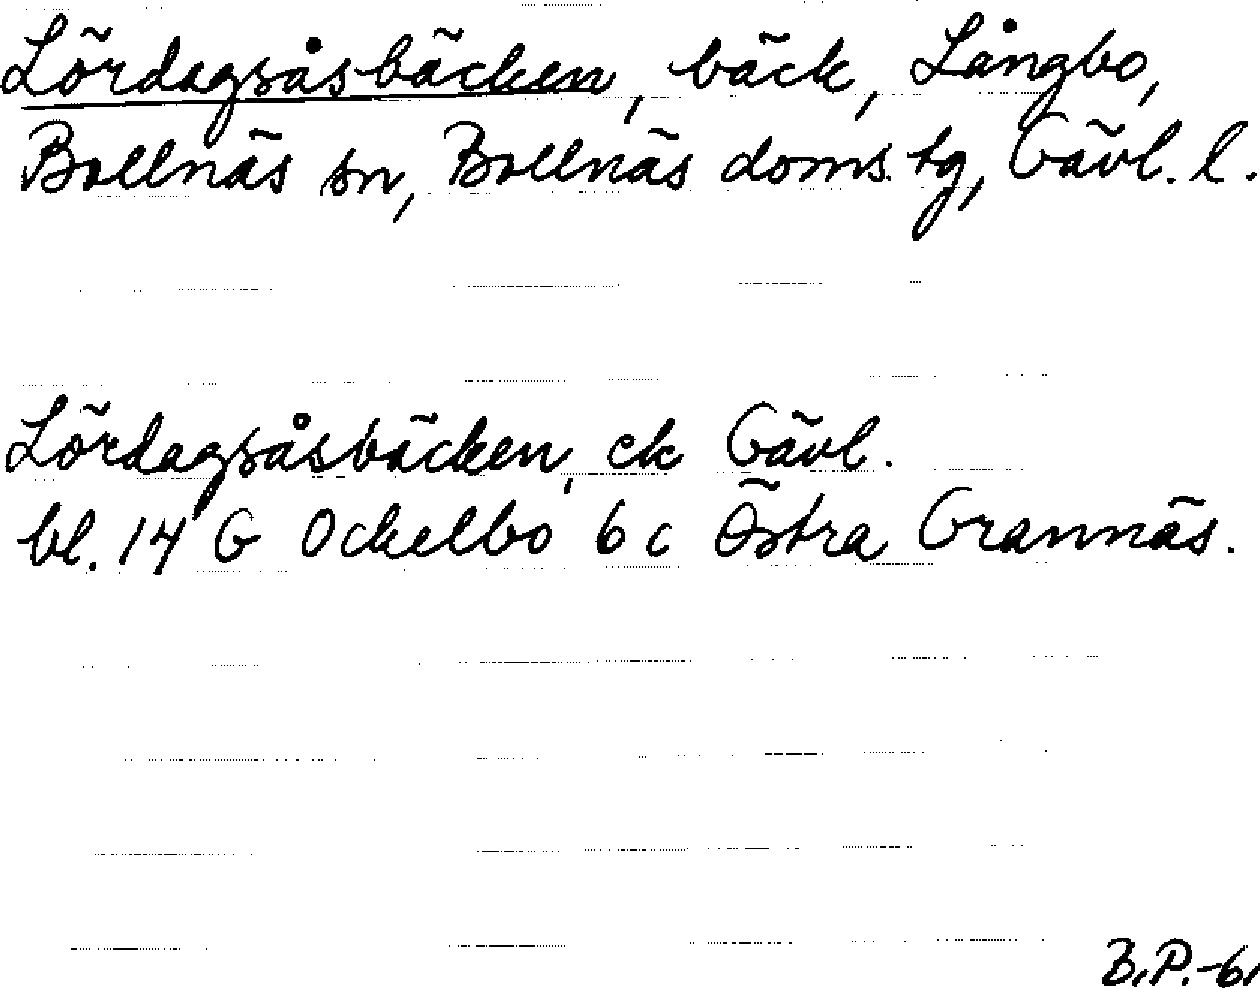 Lördagsåsbäcken, bäck, Långbo,
Bollnäs sn, Bollnäs doms. tg, Gävl. l.
Lördagsåsbäcken, ek Gävl.
bl. 14 G Ockelbo 6 c Östra Grannäs.
B.P.-61